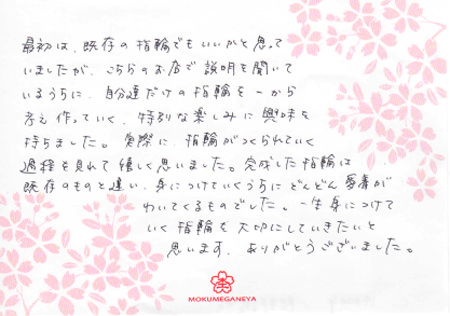 最初は、既存の指輪でもいいかと思って
いましたが、こちらのお店で説明を聞いて
いるうちに、自分達だけの指輪を一から
考え作っていく、特別な楽しみに興味を
持ちました。実際に、指輪がつくられていく
過程を見れて嬉しく思いました。完成した指輪は
既存のものと違い、身につけていくうちにどんどん愛着が
わいてくるものでした。一生身につけて
いく指輪を大切にしていきたいと
思います。ありがとうございました。
MOKUMEGANEYA